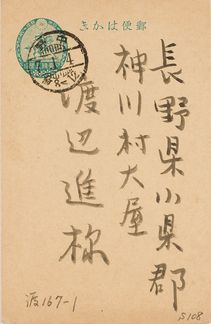 郵便はかき
長野県小県郡
神川村大屋
渡辺進様
渡167-1
S108